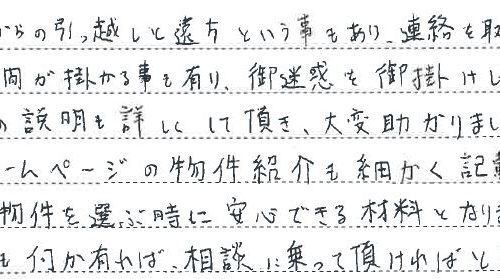 からの引っ越しと遠方という事もあり、連絡を取
間が掛かる事も有り、御迷惑を御掛けし
の説明も詳しくして頂き、大変助かりまし
ームページの物件紹介も細かく記載
物件を選ぶ時に安心できる材料となりま
も何か有れば、相談に乗って頂ければと